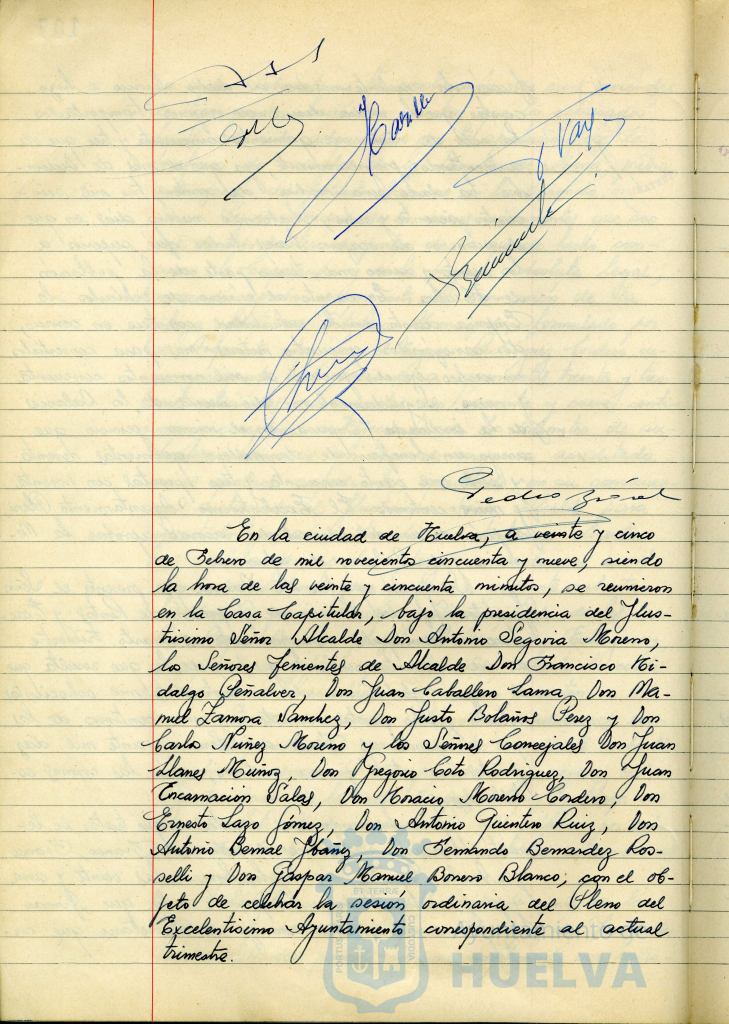 Pedro
En la ciudad de Huelva, a veinte y cinco
de Febrero de mil novecientos cincuenta y nueve, siendo
la hora de las veinte y cincuenta minutos, se reunieron
en la Casa Capitular, bajo la presidencia del Ilus-
trisimo Señor Alcalde Don Antonio Segovia Moreno,
los Señores Tenientes de Alcalde Don Francisco Hi-
dalgo Peñalver, Don Juan Caballero Lama, Don Ma-
nuel Zamora Sanchez, Don Justo Bolaños Perez y Don
Carlos Nuñez Moreno y los Señores Concejales Don Juan
Llanes Muñoz, Don Gregorio Coto Rodriguez, Don Juan
Encarnación Salas, Don Horacio Moreno Cordero, Don
Ernesto Lazo Gómez, Don Antonio Quintero Ruiz, Don
Antonio Bernal Ybáñez, Don Fernando Bernardez Ros-
selli y Don Gaspar Manuel Bonero Blanco, con el ob-
jeto de celebrar la sesión ordinaria del Pleno del
Excelentisimo Ayuntamiento correspondiente al actual
trimestre.
HUELVA